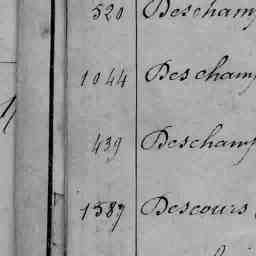 520 Deschamp
1044 Deschamp
439 Deschamp
1587 Descours